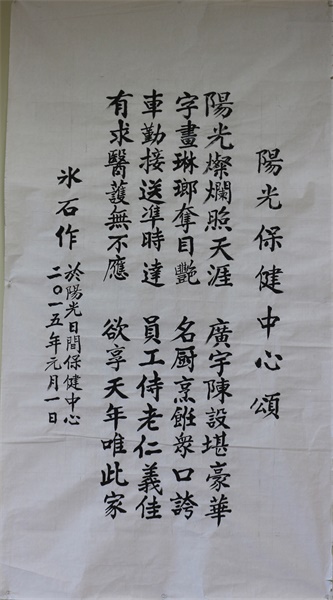 陽光保健中心頌
陽光燦爛照天涯 廣宇陳設堪豪華
字畫琳瑯奪目艷 名厨烹飪衆口誇
車勤接送準時達 員工侍老仁義佳
有求醫護無不應 欲享天年唯此家
冰石作
於陽光日間保健中心
二〇一五年元月一日